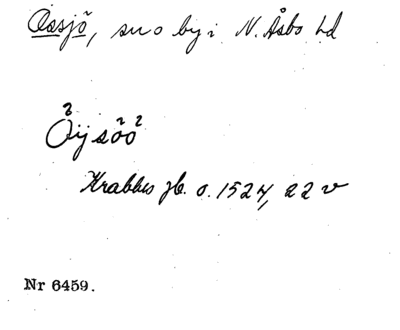 Össjö, sn o by i N. Åsbo hd
Öijsöö
Krabbes jb. o. 1524, 22 v
Nr 6459.